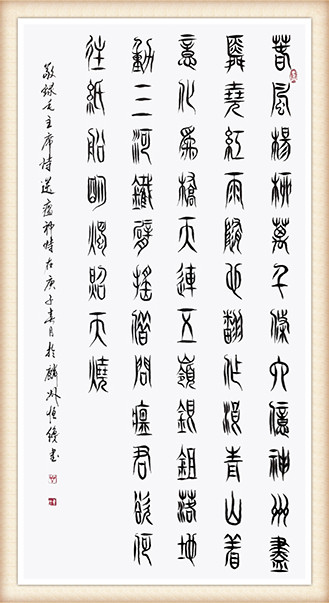 春風楊柳萬千條六億神州盡
舜堯紅雨隨心翻作浪青山着
意化為橋天連五嶺銀鉏落地
動三河鐵臂搖借問瘟君欲何
往紙船明燭照天燒
敬録毛主席詩送瘟神時在庚子春月於麟州書